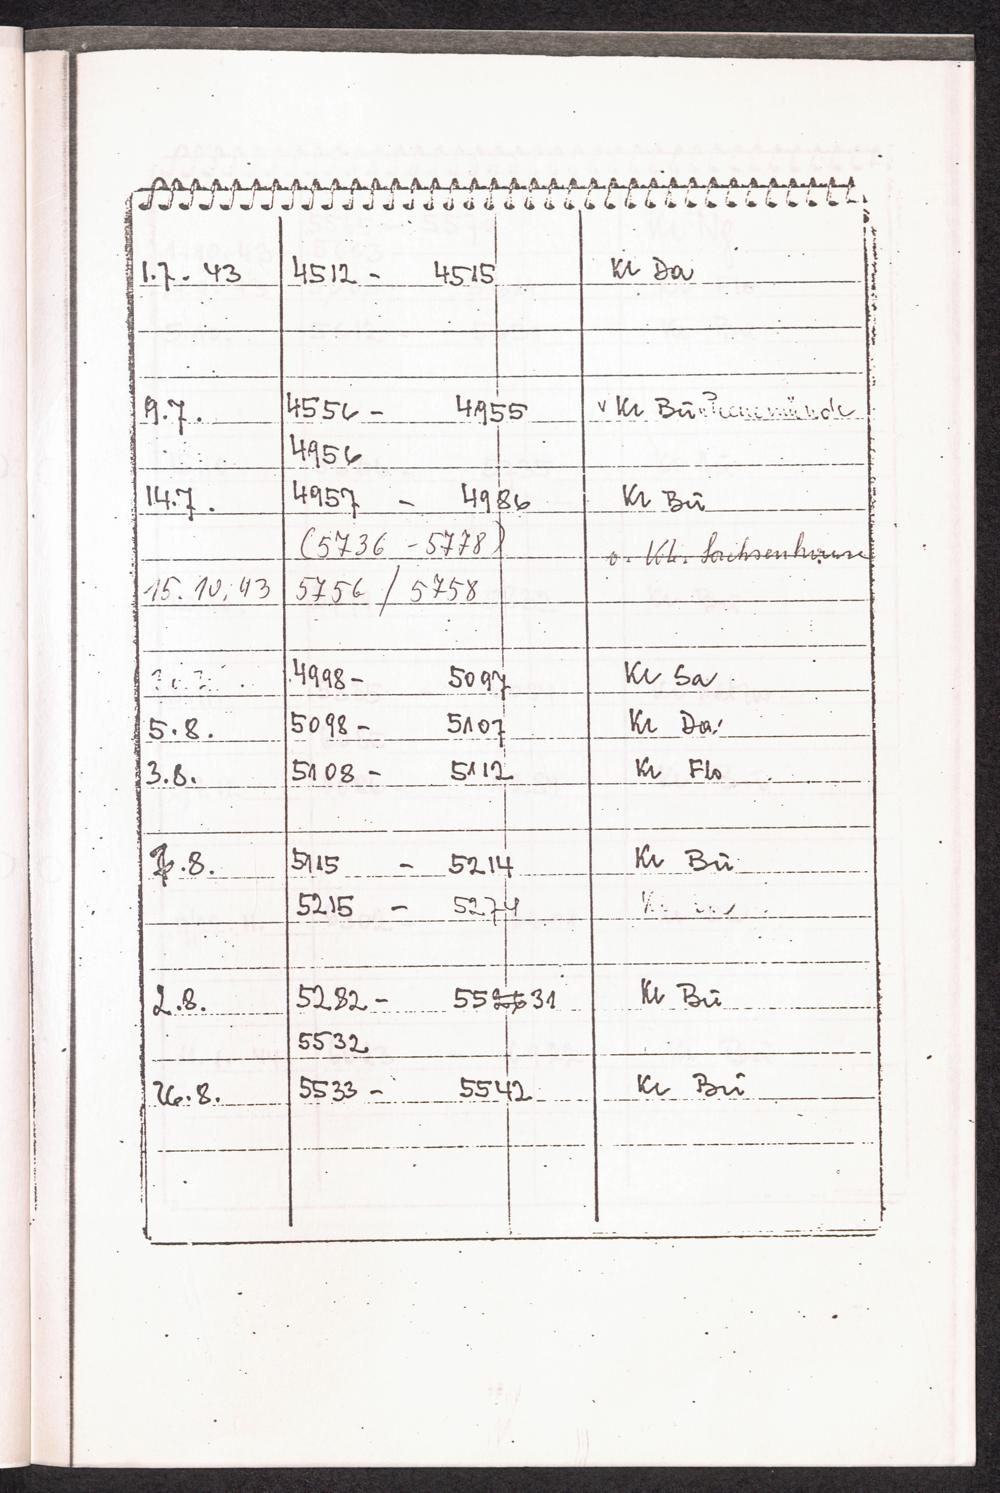 1.7. 43 4512 - 4515 Kl Da
9.7. 4556 - 4955 v Kl Bu Peenemünde
4956
14.7. 4957 - 4986 Kl Bu
(5736 - 5778) v. Kl. Sachsenhause
15.10.43 5756 / 5758
4998 - 5097 Kl Sa
5.8. 5098 - 5107 Kl Da
3.8. 5108 - 5112 Kl Flo
.8. 5115 - 5214 Kl Bu
5215 - 5274
2.8. 5282 - 5531 Kl Bu
5532
26.8. 5533 - 5542 Kl Bu